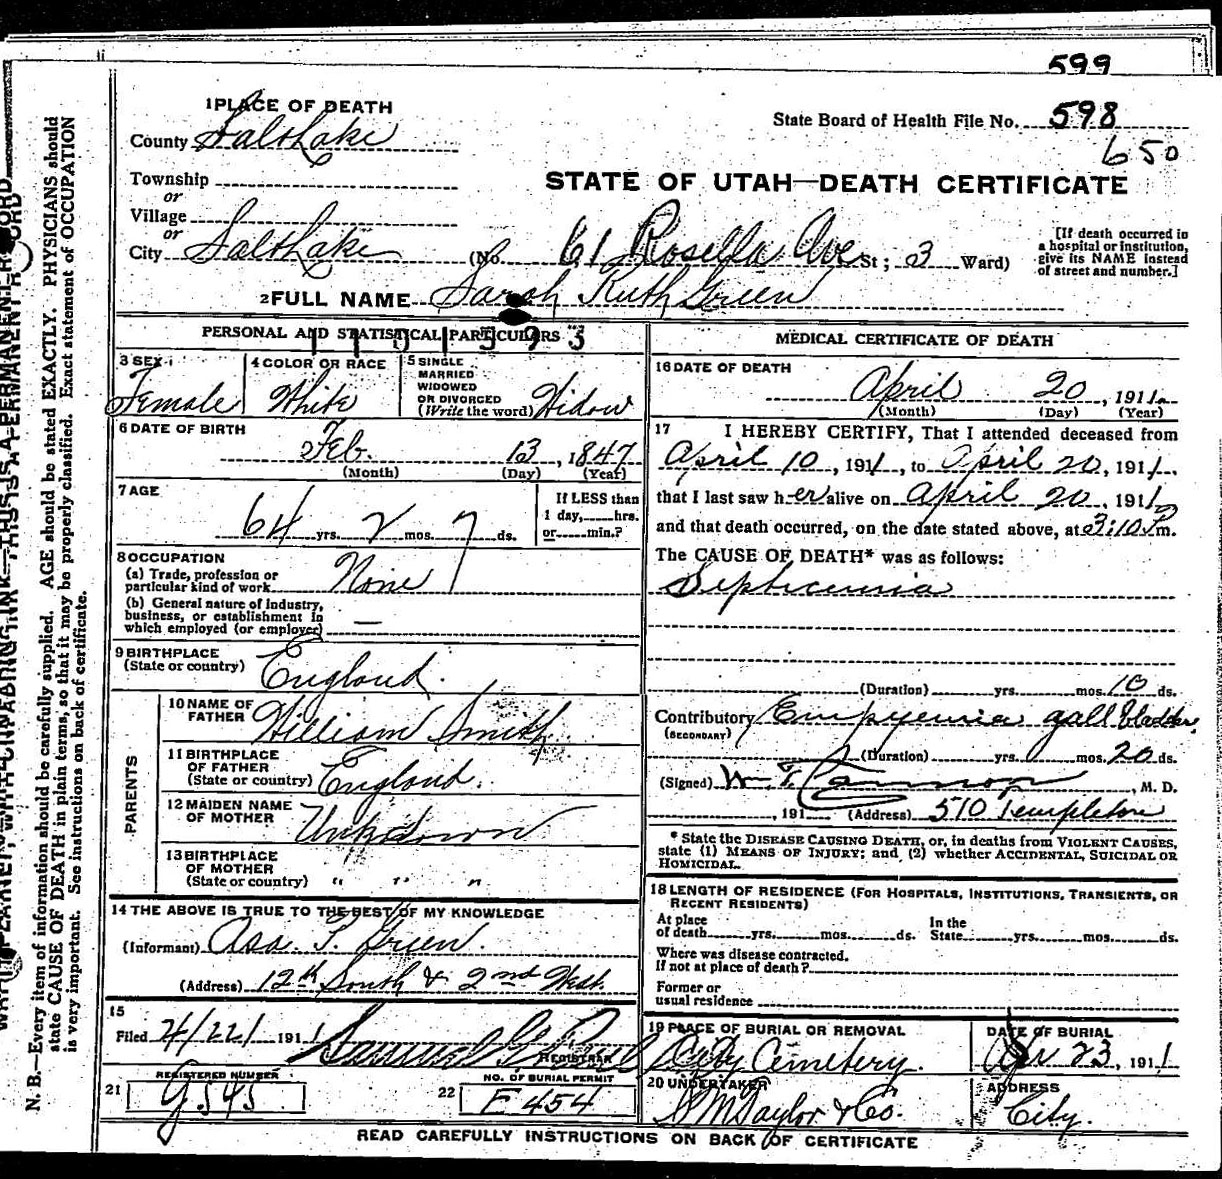 599
1 PLACE OF DEATH
State Board of Health File No. 598
County Salt Lake
650
Township
or
STATE OF UTAH—DEATH CERTIFICATE
Village
or
City Salt Lake (No. 61 Rosella Ave St; 3 Ward)
[If death occurred in
a hospital or institution,
give its NAME instead
of street and number.]
2 FULL NAME Sarah Ruth Green
PERSONAL AND STATISTICAL PARTICULARS
3 SEX
Female
4 COLOR OR RACE
White
5 SINGLE
MARRIED
WIDOWED
OR DIVORCED
(Write the word) Widow
6 DATE OF BIRTH
Feb. 13, 1847
(Month) (Day) (Year)
7 AGE
64 yrs. 2 mos. 7 ds.
If LESS than
1 day, hrs.
or min.?
8 OCCUPATION
(a) Trade, profession or
particular kind of work None
(b) General nature of industry,
business, or establishment in
which employed (or employer) —
9 BIRTHPLACE
(State or country) England.
PARENTS
10 NAME OF
FATHER William Smith
11 BIRTHPLACE
OF FATHER
(State or country) England.
12 MAIDEN NAME
OF MOTHER Unknown
13 BIRTHPLACE
OF MOTHER
(State or country) " " "
14 THE ABOVE IS TRUE TO THE BEST OF MY KNOWLEDGE
(Informant) Asa. T. Green.
(Address) 12th South & 2nd West.
15
Filed 4/22/ 1911 Samuel G. Paul
REGISTRAR
21 REGISTERED NUMBER
G 545
22 NO. OF BURIAL PERMIT
E 454
MEDICAL CERTIFICATE OF DEATH
16 DATE OF DEATH
April 20, 1911
(Month) (Day) (Year)
17 I HEREBY CERTIFY, That I attended deceased from
April 10, 1911, to April 20, 1911,
that I last saw her alive on April 20, 1911,
and that death occurred, on the date stated above, at 3:10 P m.
The CAUSE OF DEATH* was as follows:
Septicemia
(Duration) yrs. mos. 10 ds.
Contributory Empyemia gall bladder.
(SECONDARY)
(Duration) yrs. mos. 20 ds.
(Signed) W. T. Cannon, M. D.
, 191 (Address) 510 Templeton
* State the DISEASE CAUSING DEATH, or, in deaths from VIOLENT CAUSES,
state (1) MEANS OF INJURY; and (2) whether ACCIDENTAL, SUICIDAL OR
HOMICIDAL.
18 LENGTH OF RESIDENCE (FOR HOSPITALS, INSTITUTIONS, TRANSIENTS, OR
RECENT RESIDENTS)
At place
of death yrs. mos. ds.
In the
State yrs. mos. ds.
Where was disease contracted.
If not at place of death?
Former or
usual residence
19 PLACE OF BURIAL OR REMOVAL
City Cemetery.
DATE OF BURIAL
Apr 23, 1911
20 UNDERTAKER
S M Taylor & Co.
ADDRESS
City.
READ CAREFULLY INSTRUCTIONS ON BACK OF CERTIFICATE
N. B.—Every item of information should be carefully supplied. AGE should be stated EXACTLY. PHYSICIANS should
state CAUSE OF DEATH in plain terms, so that it may be properly classified. Exact statement of OCCUPATION
is very important. See instructions on back of certificate.